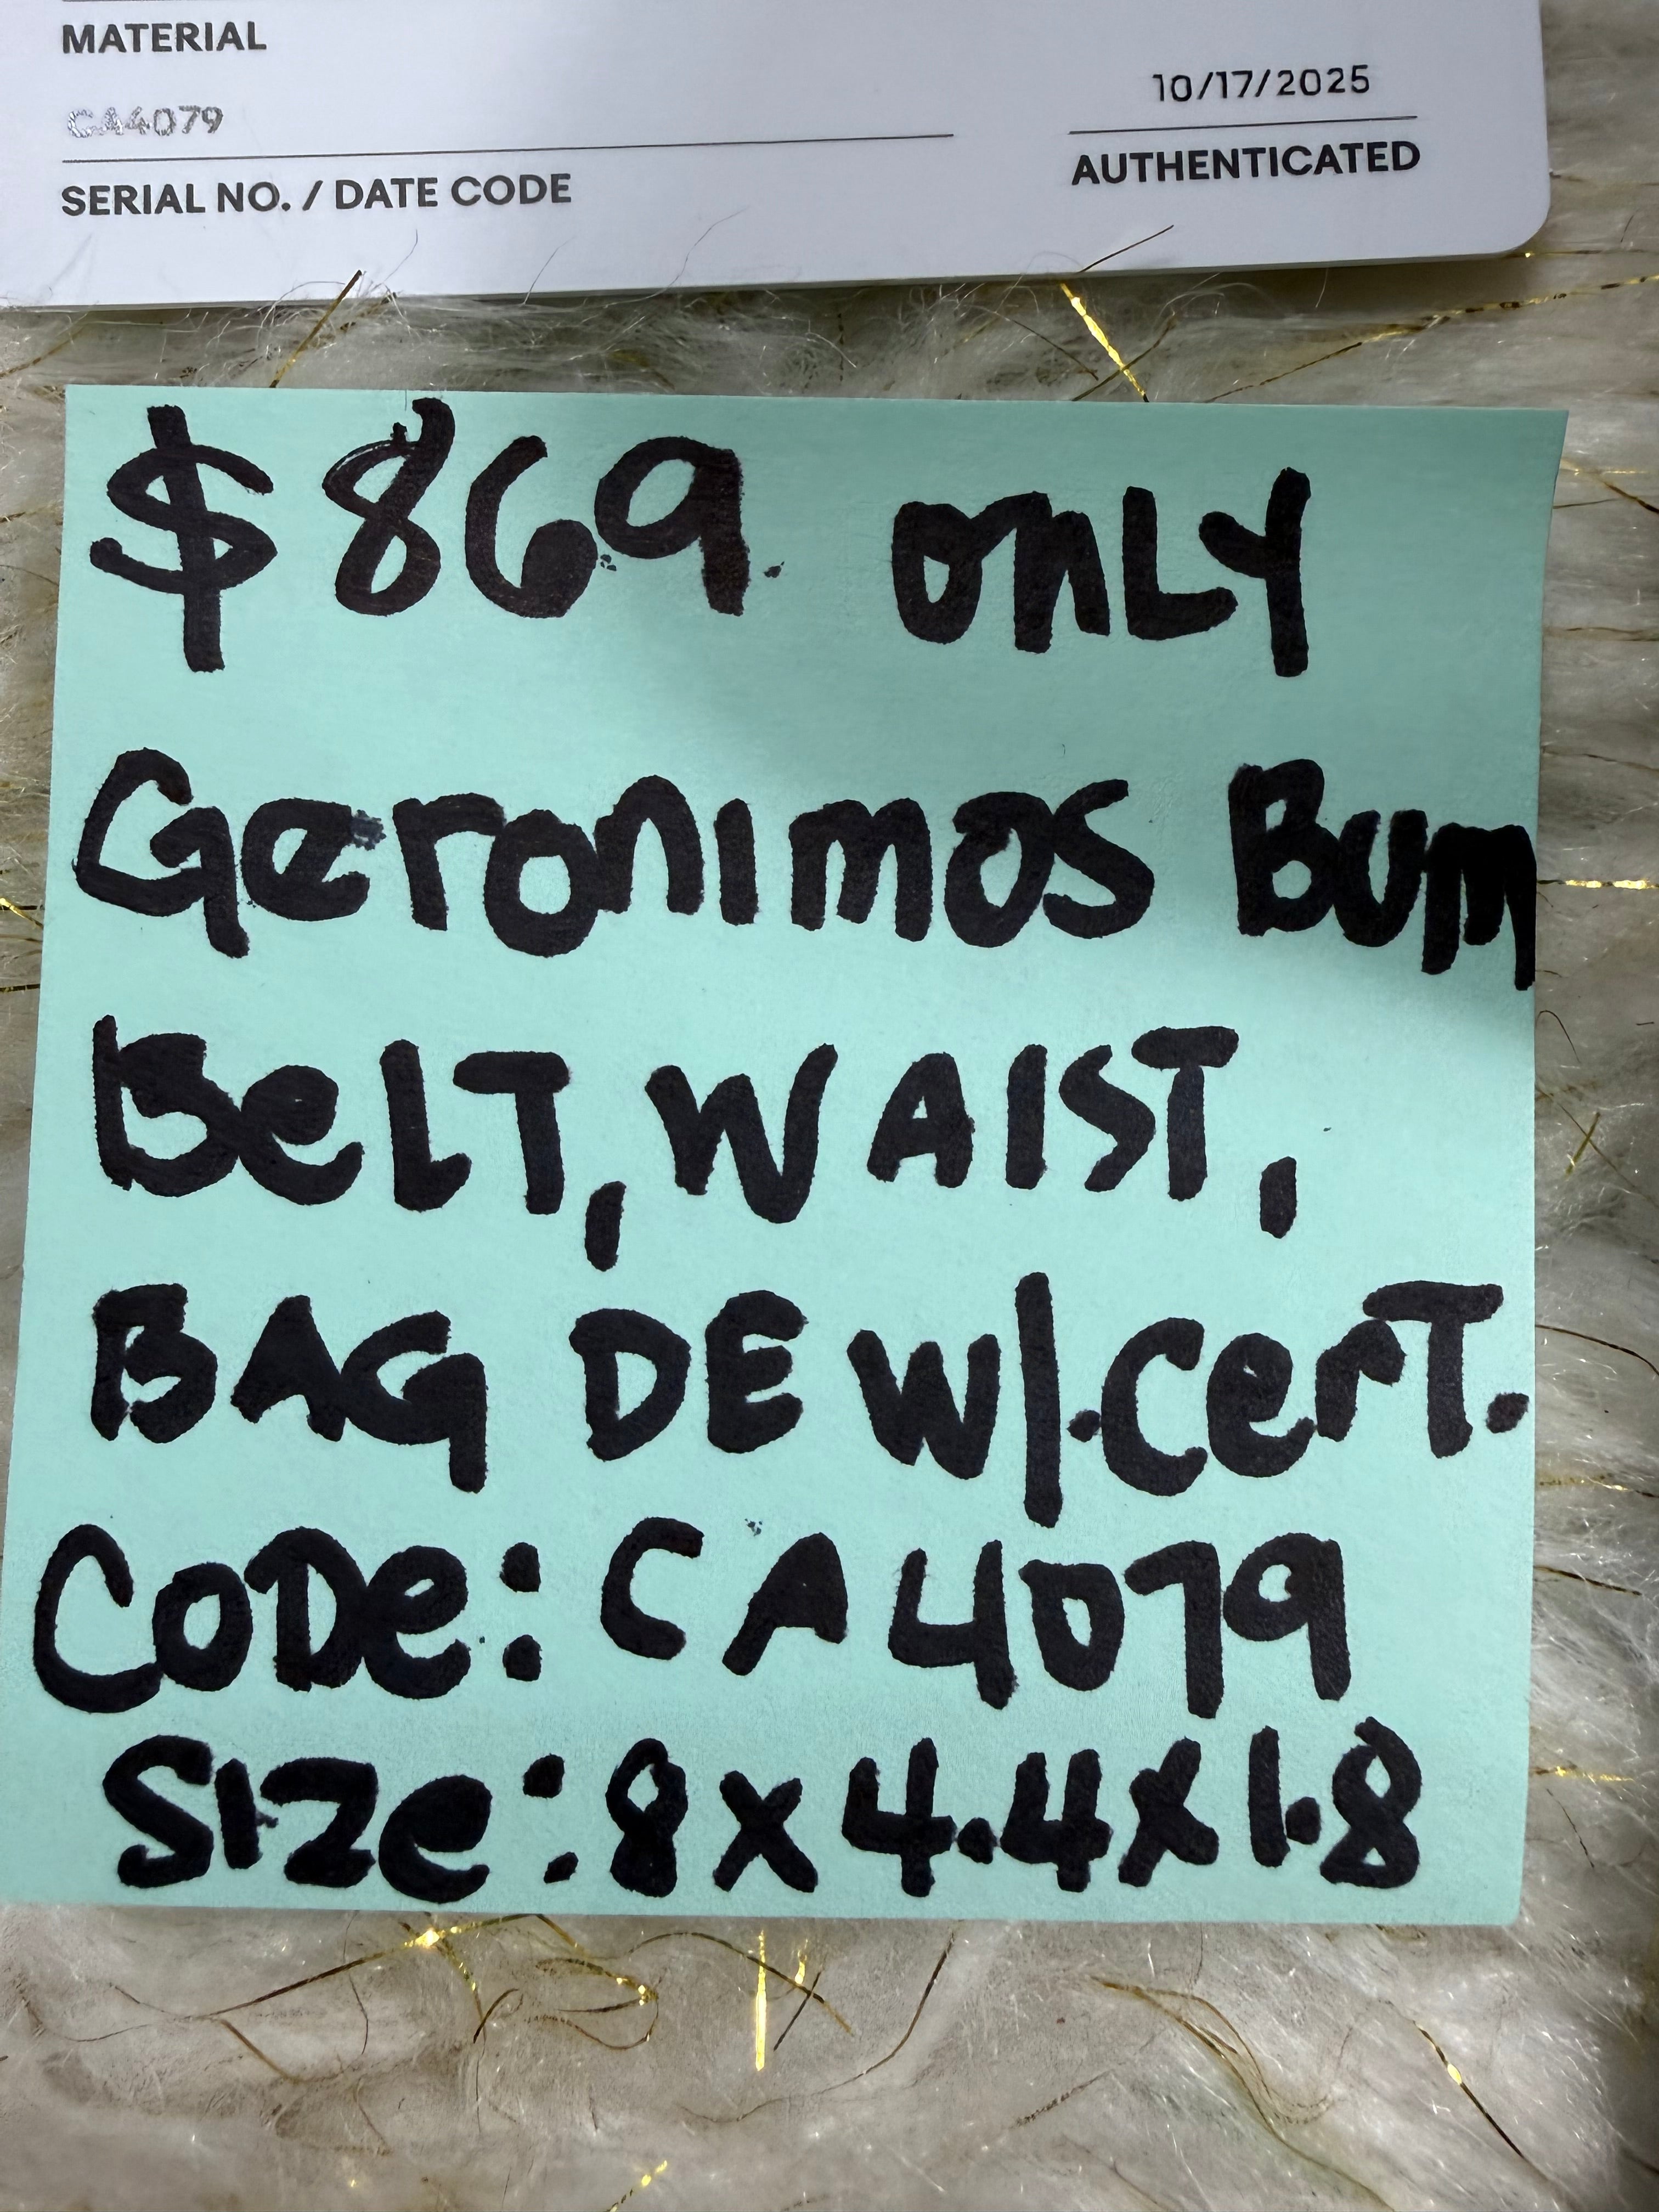 MATERIAL
CA4079
10/17/2025
SERIAL NO. / DATE CODE
AUTHENTICATED
$869. only
Geronimos Bum
BeLT, WAIST,
BAG DE W/.CerT.
CoDe: CA4079
SIze: 8x4.4x1.8